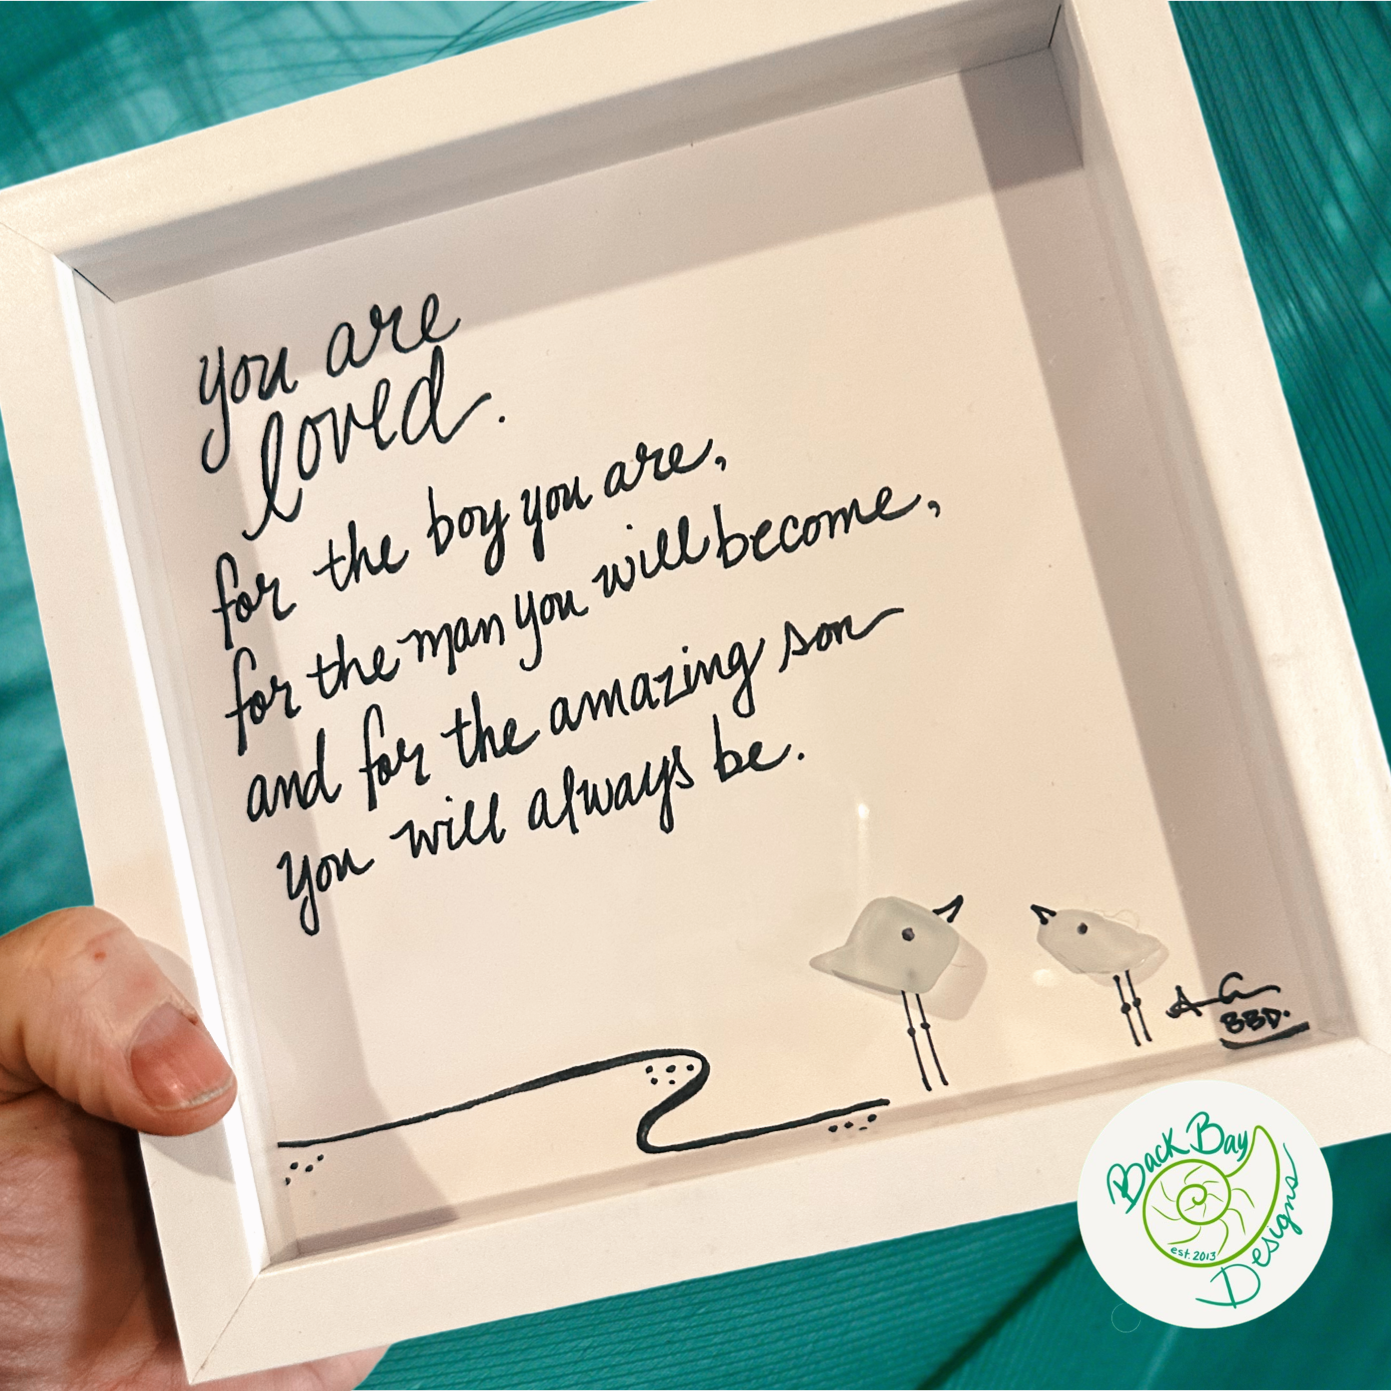 you are
loved.
for the boy you are,
for the man you will become,
and for the amazing son
you will always be.
BBD.
Back Bay
Designs
est. 2013